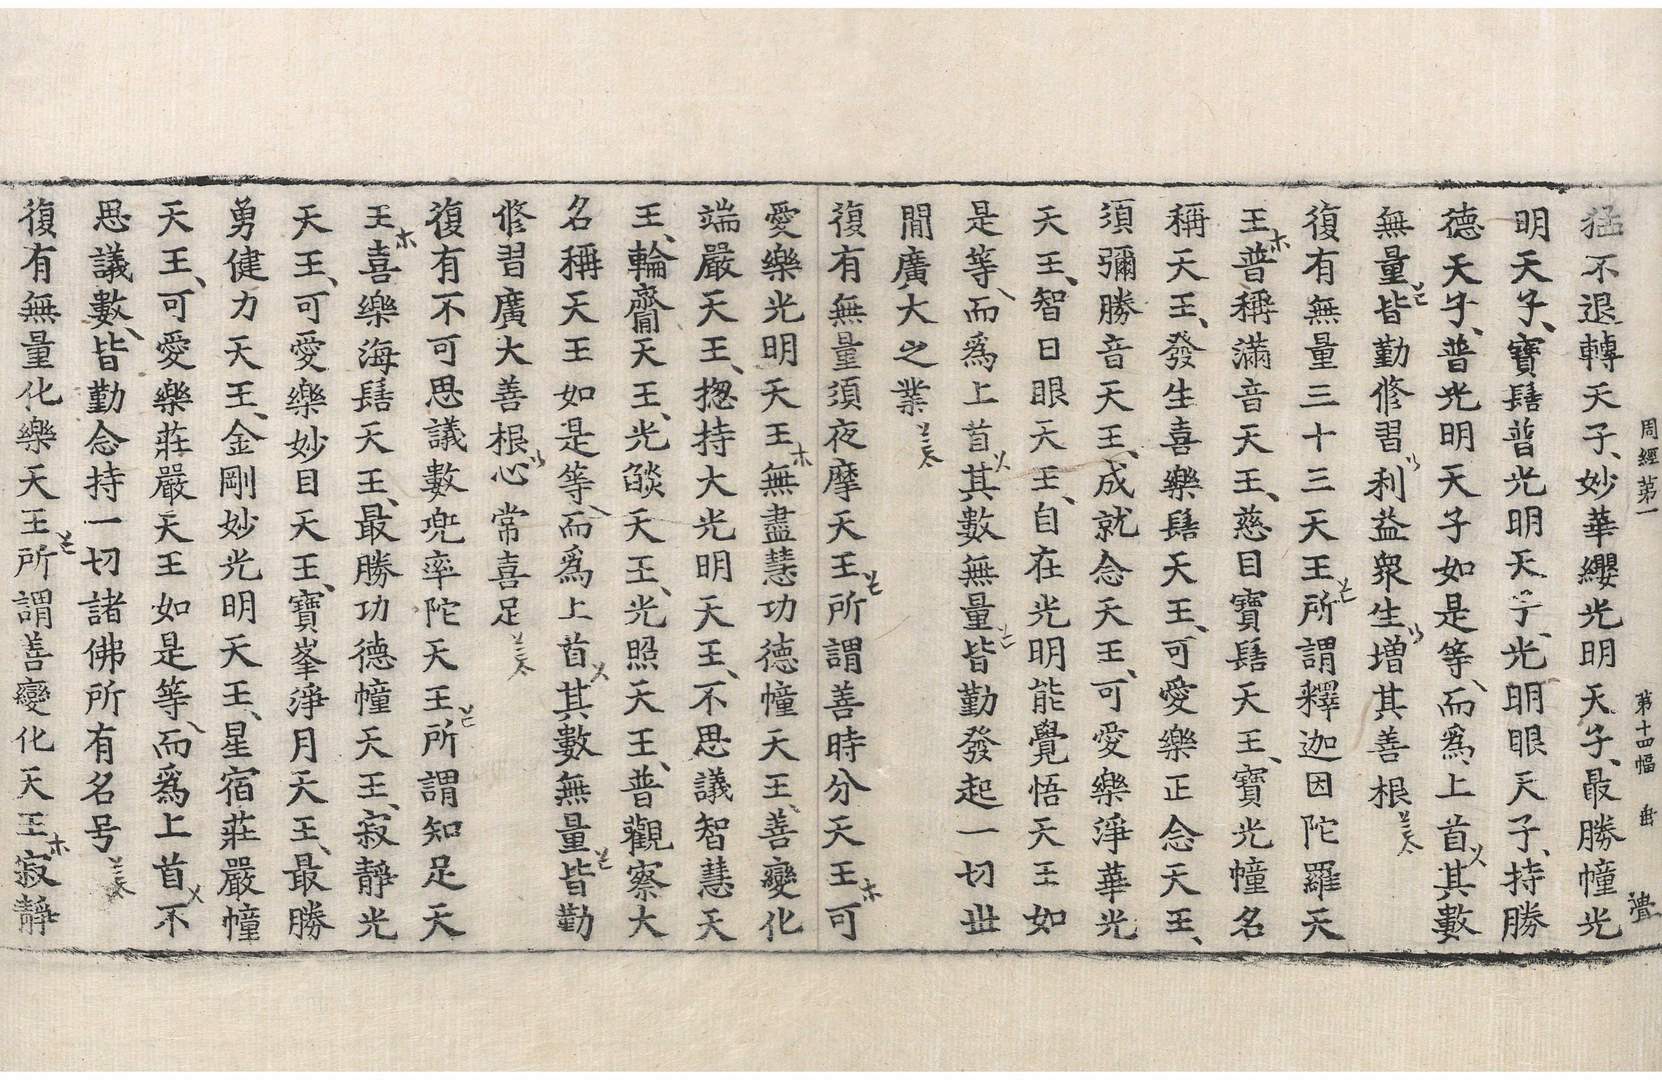 周經第一　第十四幅　𡊮
猛不退轉天子妙華纓光明天子最勝幢光
明天子寶髻普光明天子光明眼天子持勝
德天子普光明天子如是等而爲上首其數
無量皆勤修習利益衆生增其善根
復有無量三十三天王所謂釋迦因陀羅天
王普稱滿音天王慈目寶髻天王寶光幢名
稱天王發生喜樂髻天王可愛樂正念天王
須彌勝音天王成就念天王可愛樂淨華光
天王智日眼天王自在光明能覺悟天王如
是等而爲上首其數無量皆勤發起一切丗
閒廣大之業
復有無量須夜摩天王所謂善時分天王可
愛樂光明天王無盡慧功德幢天王善變化
端嚴天王揔持大光明天王不思議智慧天
王輪齎天王光燄天王光照天王普觀察大
名稱天王如是等而爲上首其數無量皆勤
修習廣大善根心常喜足
復有不可思議數兜率陀天王所謂知足天
王喜樂海髻天王最勝功德幢天王寂靜光
天王可愛樂妙目天王寶峯淨月天王最勝
勇健力天王金剛妙光明天王星宿莊嚴幢
天王可愛樂莊嚴天王如是等而爲上首不
思議數皆勤念持一切諸佛所有名号
復有無量化樂天王所謂善變化天王寂靜